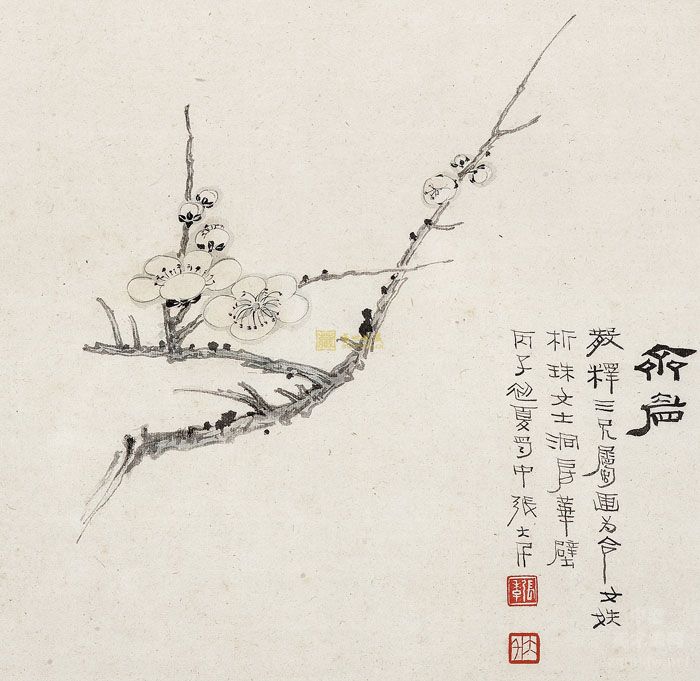 毅釋三兄屬画为令女妹
析珠女士洞房華壁
丙子初夏蜀中張大千
張爰